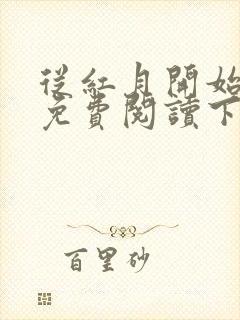 從紅月開始
免費閱讀下
百里砂